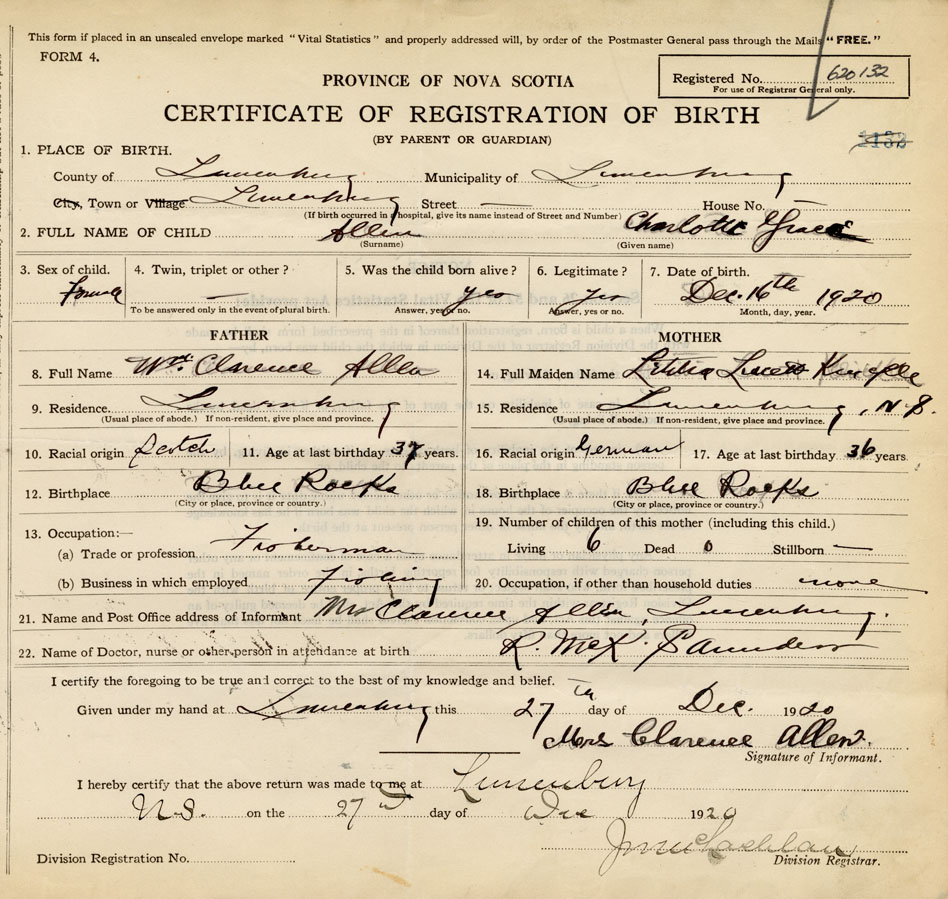 This form if placed in an unsealed envelope marked "Vital Statistics" and properly addressed will, by order of the Postmaster General pass through the Mails "FREE."
FORM 4.
PROVINCE OF NOVA SCOTIA
Registered No. 620132
For use of Registrar General only.
CERTIFICATE OF REGISTRATION OF BIRTH
(BY PARENT OR GUARDIAN)
1. PLACE OF BIRTH.
County of Lunenburg Municipality of Lunenburg
City, Town or Village Lunenburg Street — House No. —
(If birth occurred in a hospital, give its name instead of Street and Number)
2. FULL NAME OF CHILD Allen Charlotte Grace
(Surname) (Given name)
3. Sex of child. 4. Twin, triplet or other? 5. Was the child born alive? 6. Legitimate? 7. Date of birth.
Female — yes yes Dec. 16th 1920
To be answered only in the event of plural birth. Answer, yes or no. Answer, yes or no. Month, day, year.
FATHER MOTHER
8. Full Name Wm. Clarence Allen 14. Full Maiden Name Letitia
9. Residence. Lunenburg 15. Residence Lunenburg, N.S.
(Usual place of abode.) If non-resident, give place and province. (Usual place of abode.) If non-resident, give place and province.
10. Racial origin Scotch 11. Age at last birthday 37 years. 16. Racial origin German 17. Age at last birthday 36 years.
12. Birthplace Blue Rocks 18. Birthplace Blue Rocks
(City or place, province or country.) (City or place, province or country.)
13. Occupation:— 19. Number of children of this mother (including this child.)
(a) Trade or profession Fisherman Living 6 Dead 0 Stillborn —
(b) Business in which employed Fishing 20. Occupation, if other than household duties none
21. Name and Post Office address of Informant Mrs Clarence Allen, Lunenburg.
22. Name of Doctor, nurse or other person in attendance at birth R. McK. Saunders
I certify the foregoing to be true and correct to the best of my knowledge and belief.
Given under my hand at Lunenburg this 27th day of Dec. 1920
Mrs Clarence Allen.
Signature of Informant.
I hereby certify that the above return was made to me at Lunenburg
N.S. on the 27th day of Dec 1920
Division Registration No. Division Registrar.